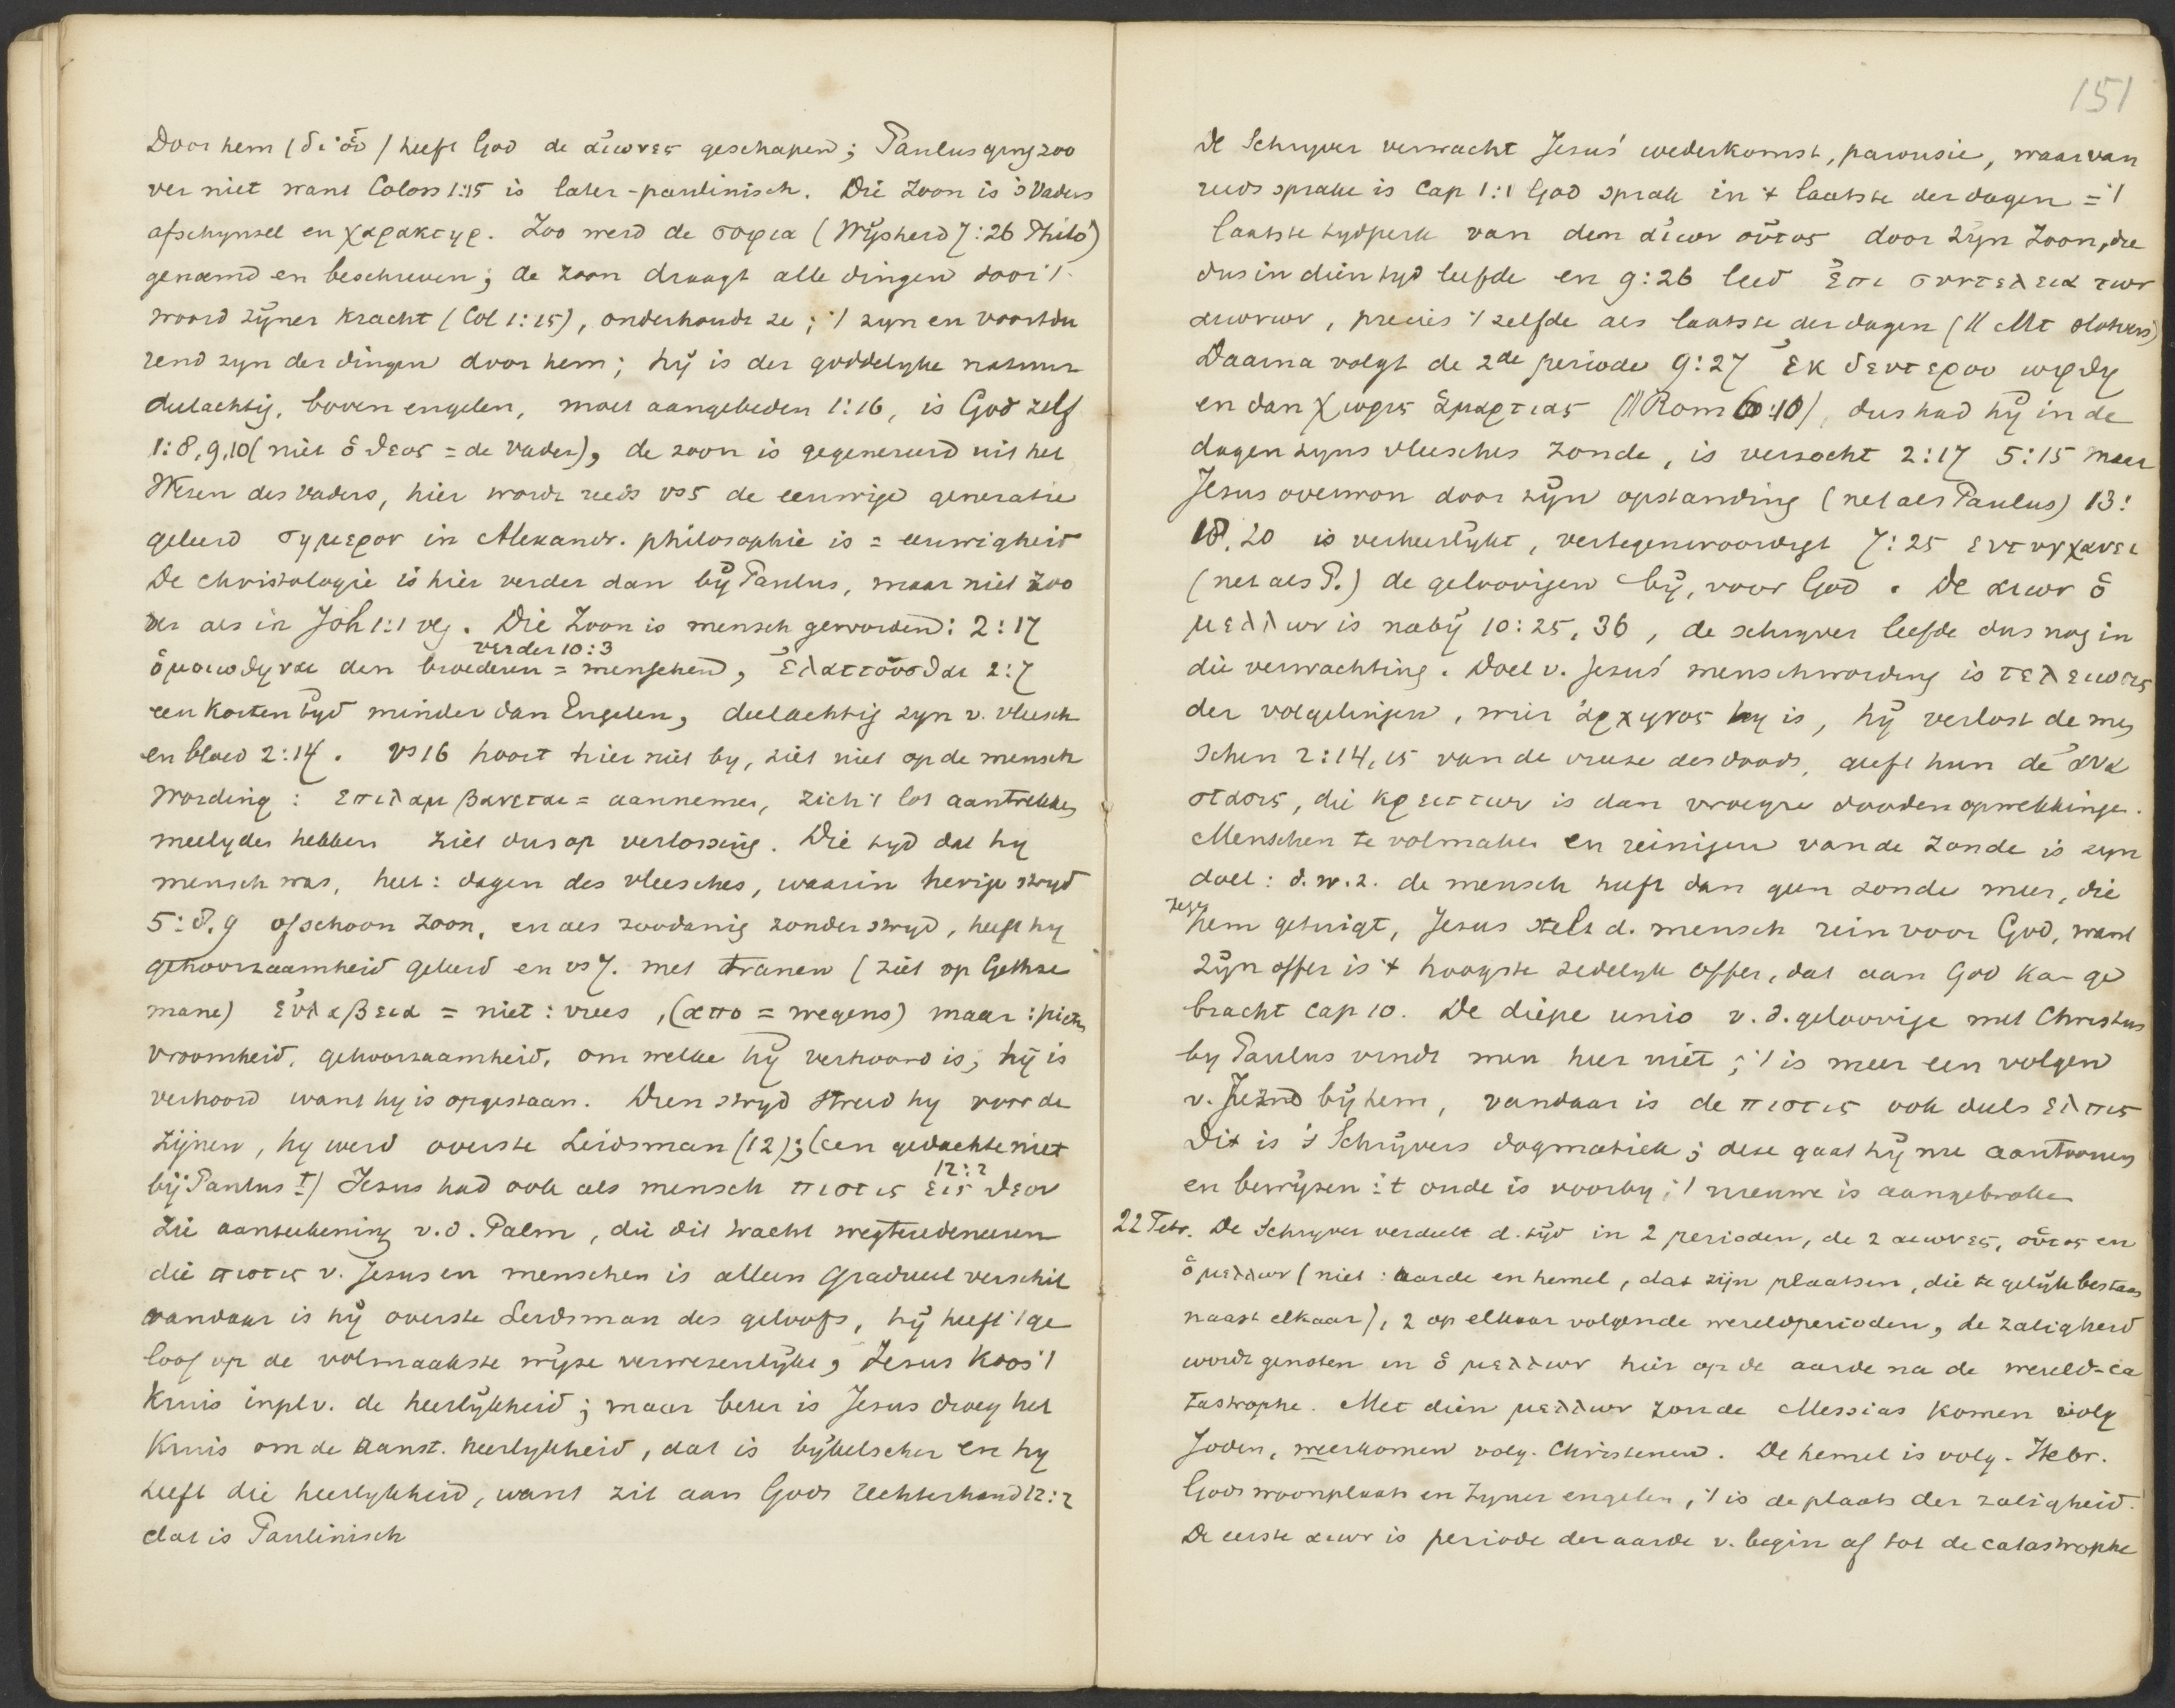 Door hem (δι' οὗ) heeft God de αἰωνες geschapen; Paulus ging zoo
ver niet want Colos 1:15 is later-paulinisch. Die Zoon is 's Vaders
afschynsel en χαρακτηρ. Zoo werd de σοφια (Wÿsheid 7:26 Philo)
genoemd en beschreven; de zoon draagt alle dingen door 't
woord zÿner kracht (Col 1:15), onderhoudt ze; 't zyn en voortdu
rend zyn der dingen door hem; hÿ is der goddelyke natuur
deelachtig, boven engelen, moet aangebeden 1:16, is God zelf
1:8,9,10 (niet ὁ θεος = de Vader), de zoon is gegenereerd uit het
Wezen des Vaders, hier wordt reeds vs 5 de eeuwige generatie
geleerd σημερον in Alexandr. philosophie is = eeuwigheid
De christologie is hier verder dan bÿ Paulus, maar niet zoo
ver als in Joh 1:1 vlg. Die Zoon is mensch geworden: 2:17
verder 10:3
ὁμοιωθηναι den broederen = menschen, ἐλαττοῦσθαι 2:7
een korten tyd minder dan Engelen, deelachtig zyn v. vleesch
en bloed 2:14. vs 16 hoort hier niet by, ziet niet op de mensch
wording: επιλαμβανεται = aannemen, zich 't lot aantrekken
meelyden hebben ziet dus op verlossing. Die tyd dat hy
mensch was, heet: dagen des vleesches, waarin hevige stryd
5:8,9 ofschoon zoon, en als zoodanig zonder stryd, heeft hy
gehoorzaamheid geleerd en vs 7. met tranen (ziet op Gethse
mane) εὐλαβεια = niet: vrees, (απο = wegens) maar: pietas
vroomheid, gehoorzaamheid, om welke hÿ verhoord is; hÿ is
verhoord want hy is opgestaan. Dien stryd streed hy voor de
zijnen, hy werd overste Leidsman (12); (een gedachte niet
12:2
bÿ Paulus †) Jesus had ook als mensch πιστις εἰς θεον
zie aanteekening v.d. Palm, die dit tracht wegteredeneeren
die πιστις v. Jesus en menschen is alleen gradueel verschil
vandaar is hÿ overste Leidsman des geloofs, hÿ heeft 't ge
loof op de volmaakste wÿze verwezenlÿkt, Jesus koos 't
kruis inpl v. de heerlÿkheid; maar beter is Jesus droeg het
Kruis om de aanst. heerlykheid, dat is bÿbelscher en hy
heeft die heerlykheid, want zit aan Gods rechterhand 12:2
dat is Paulinisch
151
De Schryver verwacht Jesus' wederkomst, parousie, waarvan
reeds sprake is Cap 1:1 God sprak in 't laatste der dagen = 't
laatste tydperk van den αἰων οὗτος door zÿn Zoon, die
dus in dien tyd leefde en 9:26 leed ἐπι συντελεια των
αιωνων, precies 't zelfde als laatste der dagen (// Mt slotvers)
Daarna volgt de 2de periode 9:27 ἐκ δευτερου ωφθη
en dan χωρις ἁμαρτιας (// Rom 6:10), dus had hÿ in de
dagen zyns vleesches zonde, is verzocht 2:17 5:15 maar
Jesus overwon door zÿn opstanding (net als Paulus) 13:
18,20 is verheerlÿkt, vertegenwoordigt 7:25 εντυγχανει
(net als P.) de geloovigen bÿ, voor God. De αιων ὁ
μελλων is nabÿ 10:25,36, de schryver leefde dus nog in
die verwachting. Doel v. Jesus' menschwording is τελειωσις
der volgelingen, wier ἀρχηγος hy is, hÿ verlost de men
schen 2:14,15 van de vreeze des doods, geeft hun de ἀνα
στασις, die κρειττων is dan vroegre doodenopwekkingen.
Menschen te volmaken en reinigen van de zonde is zyn
doel: d.w.z. de mensch heeft dan geen zonde meer, die
tegen
hem getuigt, Jesus stelt d. mensch rein voor God, want
zÿn offer is 't hoogste zedelyk offer, dat aan God kan ge
bracht Cap 10. De diepe unio v. d. geloovige met Christus
by Paulus vindt men hier niet; 't is meer een volgen
v. Jezus bÿ hem, vandaar is de πιστις ook deels ελπις
Dit is 's Schrÿvers dogmatiek; deze gaat hÿ nu aantoonen
en bewÿzen: 't oude is voorby; 't nieuwe is aangebroken
22 Febr. De Schryver verdeelt d. tÿd in 2 perioden, de 2 αιωνες, οὗτος en
ὁ μελλων (niet: aarde en hemel, dat zijn plaatsen, die te gelÿk bestaan
naast elkaar), 2 op elkaar volgende wereldperioden, de zaligheid
wordt genoten in ὁ μελλων hier op de aarde na de wereld-ca
tastrophe. Met dien μελλων zoude Messias komen volg
Joden, weerkomen volg. Christenen. De hemel is volg. Hebr.
Gods woonplaats en zyner engelen, 't is de plaats der zaligheid.
De eerste αιων is periode der aarde v. begin af tot de catastrophe